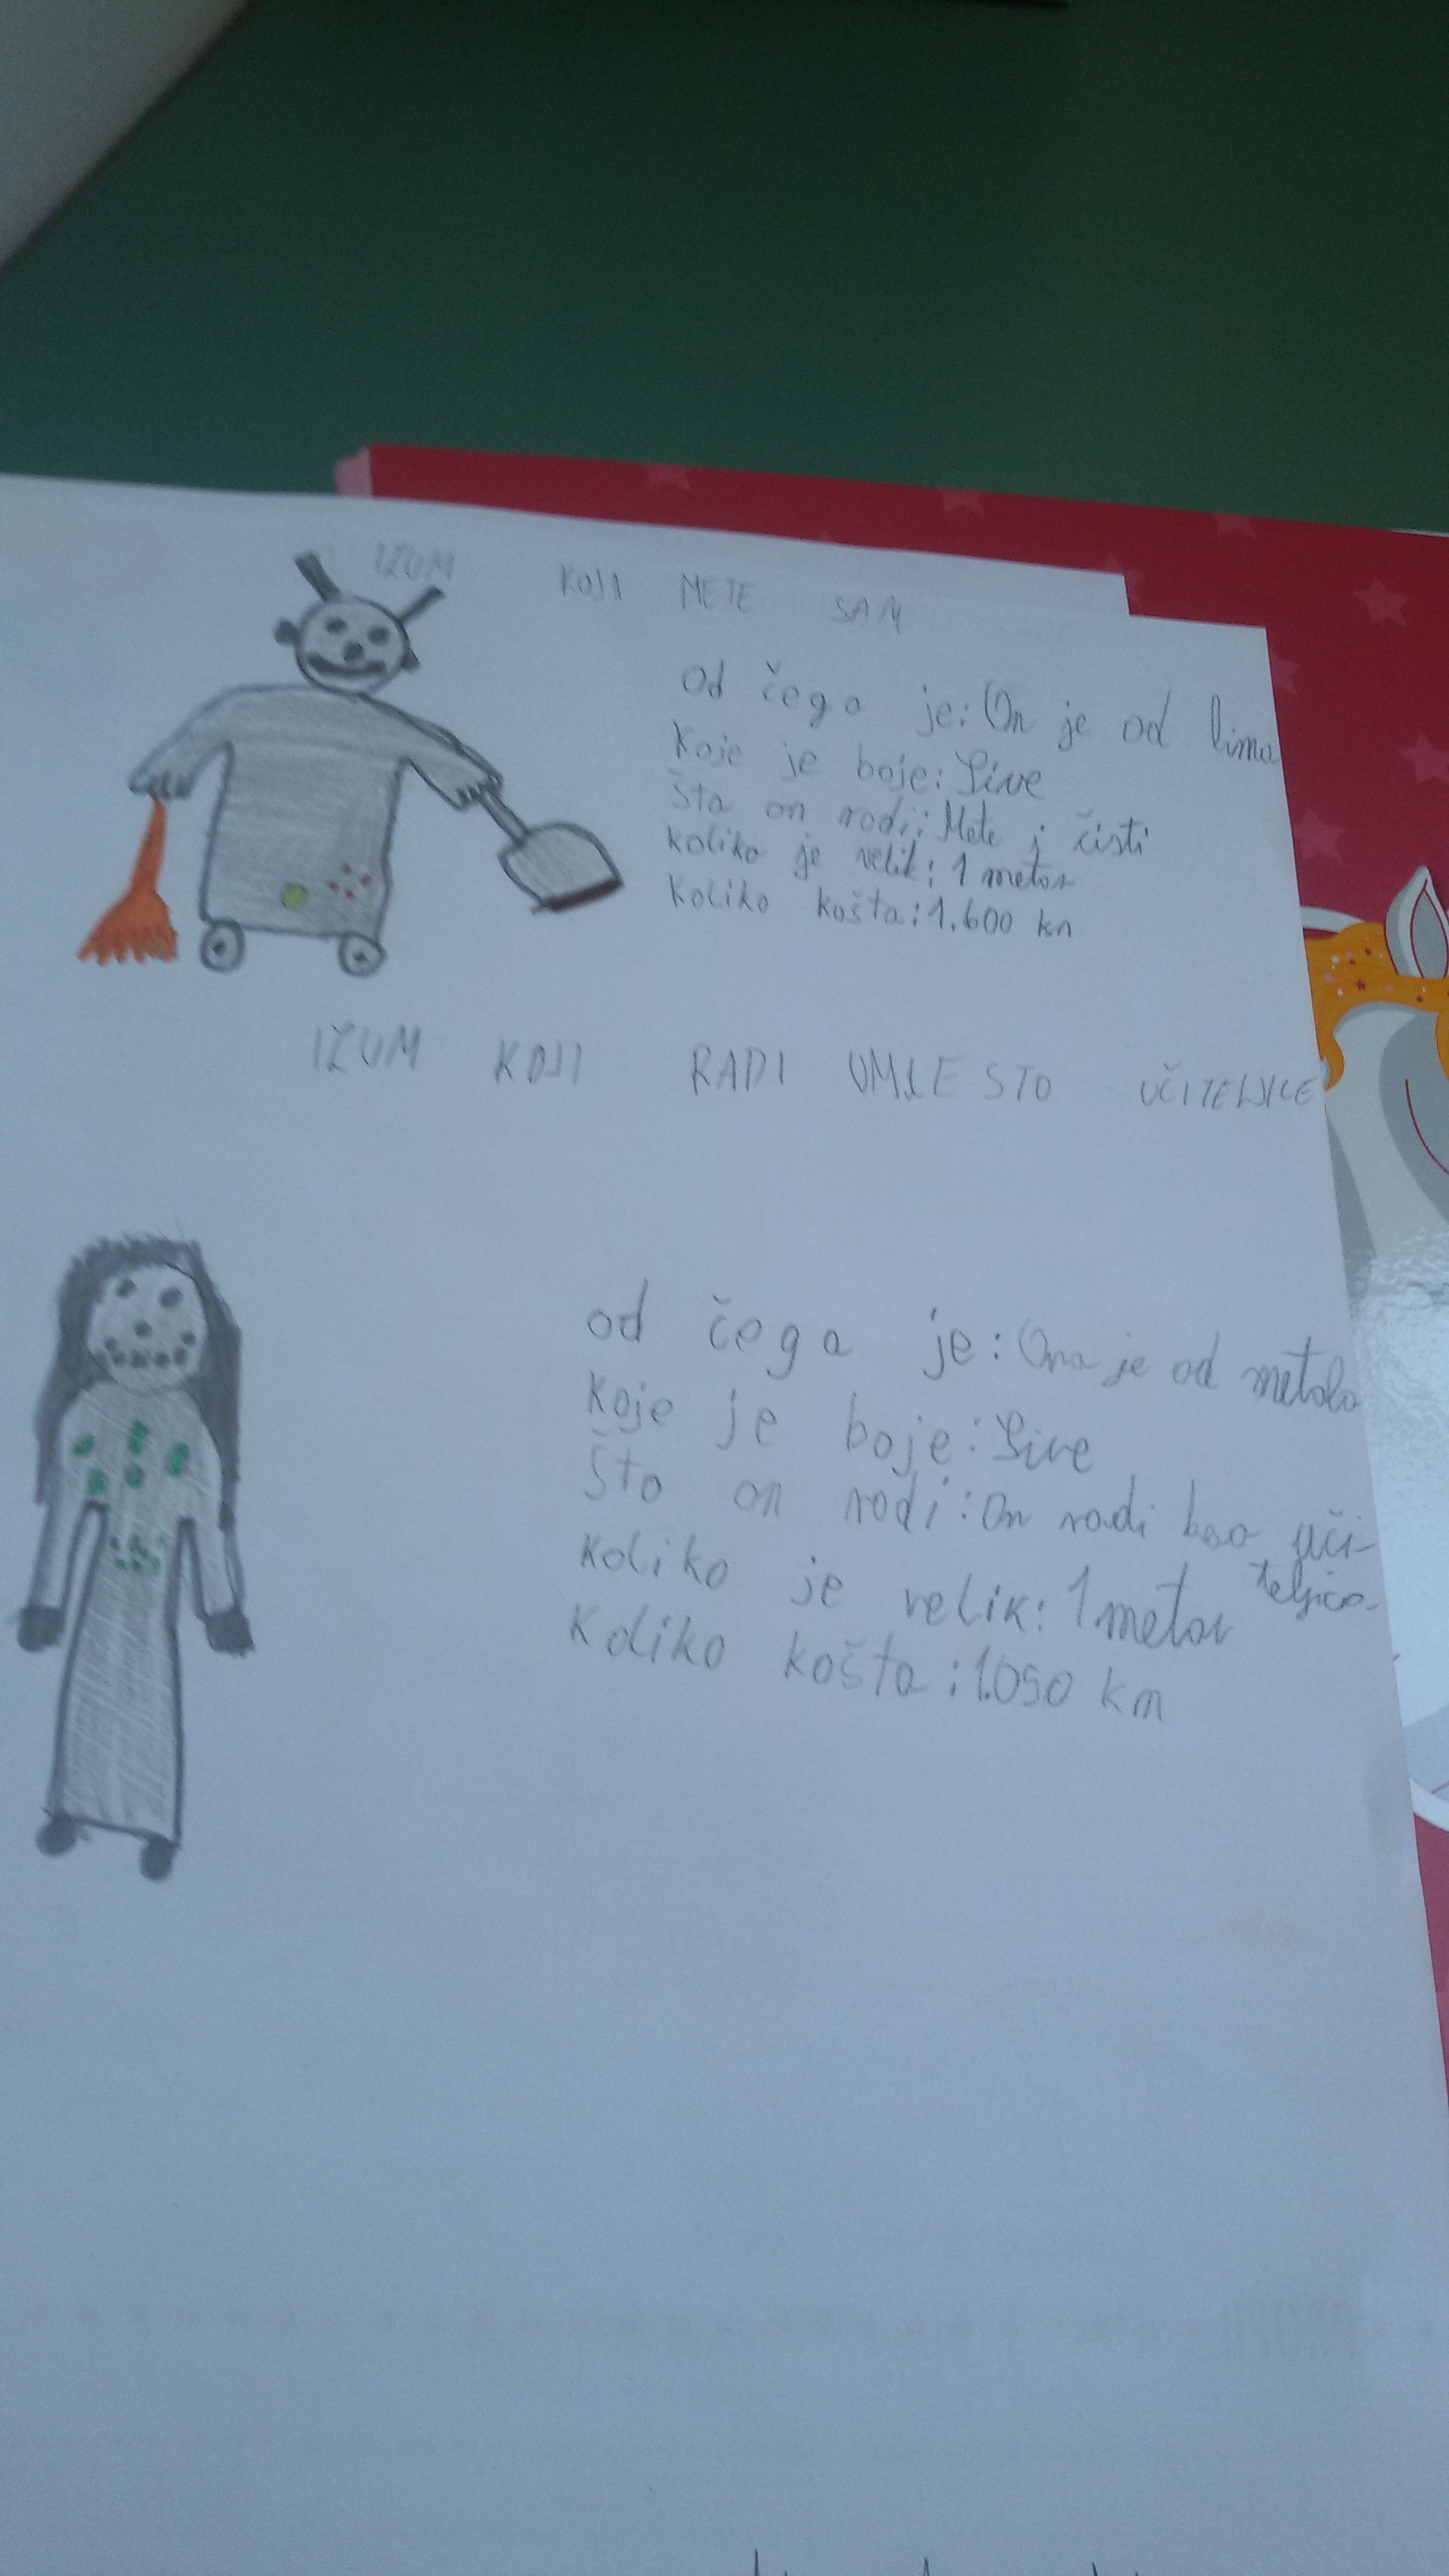 IZUM KOJI METE SAM
od čega je: On je od lima
Koje je boje: Sive
Šta on radi: Mete i čisti
koliko je velik: 1 metar
Koliko košta: 1.600 kn
IZUM KOJI RADI UMIESTO UČITELJICE
od čega je: Ona je od metala
Koje je boje: Sive
Što on radi: On radi kao uči-
teljica.
Koliko je velik: 1 metar
Koliko košta: 1.050 kn